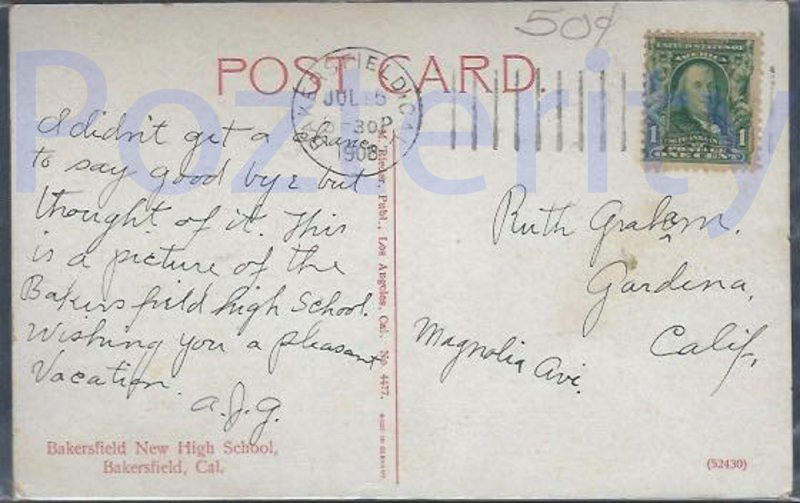 50¢
POST CARD.
BAKERSFIELD, CAL
JUL 15
-30P
1908
UNITED STATES OF
AMERICA
1 1
ONE CENT
I didn't get a chance
to say good bye but
thought of it. This
is a picture of the
Bakersfield high School.
Wishing you a pleasant
Vacation.
a.J.G.
Bakersfield New High School,
Bakersfield, Cal.
M. Rieder, Publ., Los Angeles, Cal. No. 4477.
MADE IN GERMANY
Ruth Graham.
Gardena,
Calif.
Magnolia Ave.
(52430)
Pozterity